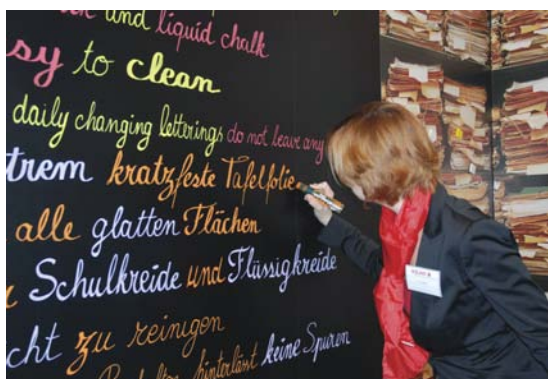 and liquid chalk
sy to clean
daily changing letterings do not leave any
trem kratzfeste Tafelfolie
alle glatten Flächen
Schulkreide und Flüssigkreide
cht zu reinigen
hinterlässt keine Spuren